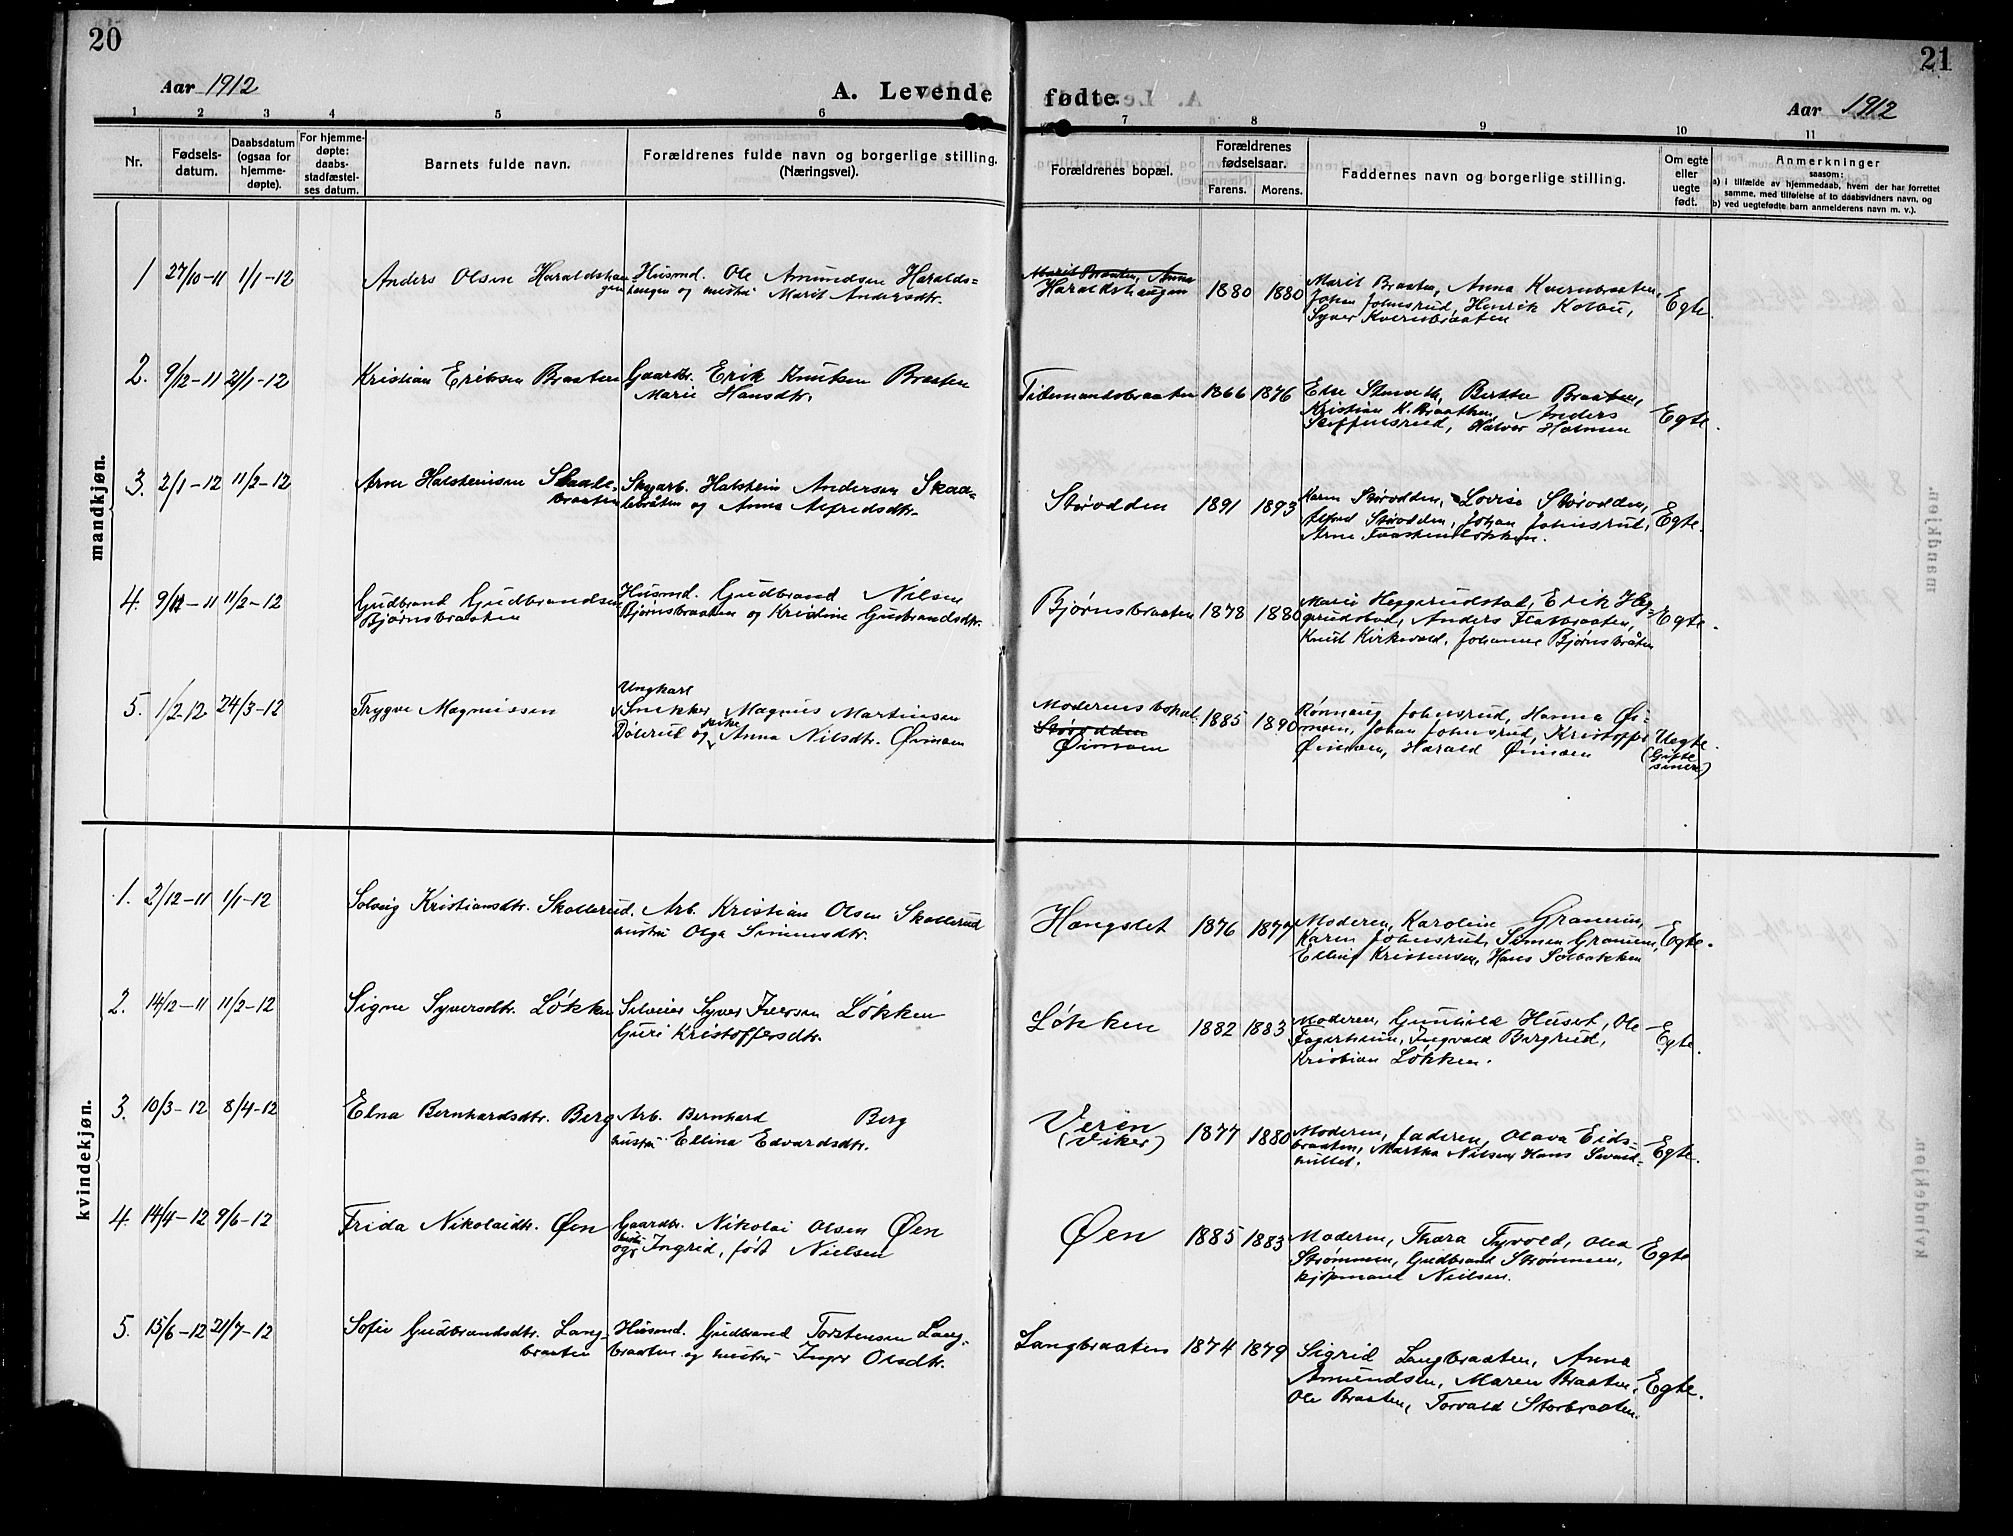 20
21
Aar 1912
A. Levende fødte.
Aar 1912
1 2 3 4 5 6 7 8 9 10 11
Nr.
Fødsels-
datum.
Daabsdatum
(ogsaa for
hjemme-
døpte).
For hjemme-
døpte:
daabs-
stadfæstel-
ses datum.
Barnets fulde navn.
Forældrenes fulde navn og borgerlige stilling.
(Næringsvei).
Forældrenes bopæl.
Forældrenes
fødselsaar.
Farens. Morens.
Faddernes navn og borgerlige stilling.
Om egte
eller
uegte
født.
Anmerkninger
saasom:
a) i tilfælde av hjemmedaab, hvem der har forrettet
samme, med tilføielse af to daabsvidners navn, og
b) ved uegtefødte barn anmelderens navn m. v.).
mandkjøn.
1 27/10-11 1/1-12
Anders Olsen Haraldshau
gen
Husmd. Ole Amundsen Haralds-
haugen og hustru Marit Andersdtr.
Marit Braaten, Anna
Haraldshaugen
1880 1880
Marit Braaten, Anna Kvernbraaten,
Johan Johnsrud, Henrik Kolbu,
Syver Kvernbraaten
Egte.
2. 9/12-11 21/1-12
Kristian Eriksen Braaten
Gaardbr. Erik Knutsen Braaten
Marie Hansdtr.
Tidemandsbraaten 1866 1876
Else Stenseth, Berthe Braaten,
Kristian K. Braathen, Anders
Steffensrud, Halvor Holmen
Egte.
3. 2/1-12 11/2-12
Arne Halsteinsen Skaale-
braaten
Skogarb. Halstein Andersen Skaa-
lebråten og Anna Alfredsdtr.
Størodden 1891 1893
Karen Størodden, Lovise Størodden,
Alfred Størodden, Johan Johnsrud,
Arne Traastenløkken.
Egte.
4. 9/12-11 11/2-12
Gudbrand Gudbrandsen
Bjørnsbraaten
Husmd. Gudbrand Nilsen
Bjørnsbraaten og Kristine Gudbrandsdtr.
Bjørnsbraaten 1878 1880
Marie Heggerudstad, Erik Heg-
gerudstad, Anders Flatbraaten,
Knud Kirkevold, Johanne Bjørnsbråten
Egte.
5. 1/2-12 24/3-12
Trygve Magnussen
Ungkarl
Snekker Magnus Martinsen
Dølerud og pike Anna Nilsdtr. Øimoen
Moderens bopæl.
Størodden
Øimoen
1885 1890
Rønnaug Johnsrud, Hanna Øi-
moen, Johan Johnsrud, Kristoffer
Øimoen, Harald Øimoen
Uegte.
(Gifte
senere)
kvindekjøn.
1. 2/12-11 1/1-12
Solveig Kristiansdtr. Skollerud.
Arb. Kristian Olsen Skollerud
hustru Olga Simensdtr.
Hængslet 1876 1877
Moderen, Karoline Granum,
Karen Johnsrud, Simen Granum,
Elling Kristensen, Hans Solbakken
Egte.
2. 14/12-11 11/2-12
Signe Syversdtr. Løkken
Selveier Syver Iversen Løkken
Guri Kristoffersdtr.
Løkken 1882 1883
Moderen, Gunhild Huset, Ole
Fagerheim, Ingvald Bergrud,
Kristian Løkken.
Egte.
3. 10/3-12 8/4-12
Elna Bernhardsdtr. Berg
Arb. Bernhard Berg
hustru Ellina Edvardsdtr.
Veien
(Viker)
1877 1880
Moderen, faderen, Olava Eids-
braaten, Martha Nilsen, Hans
Egte.
4. 14/4-12 9/6-12
Frida Nikolaidtr. Øen
Gaardbr. Nikolai Olsen Øen
og hustru Ingrid, født Nielsen
Øen 1885 1883
Moderen, Thora Tyvold, Olea
Strømmen, Gudbrand Strømmen,
kjøpmand Nielsen.
Egte
5. 15/6-12 21/7-12
Sofie Gudbrandsdtr. Lang-
braaten
Husmd. Gudbrand Torstensen Lang-
braaten og hustru Inger Olsdtr.
Langbraaten 1874 1879
Sigrid Langbraaten, Anna
Amundsen, Maren Braaten,
Ole Braaten, Torvald Storbraaten.
Egte.